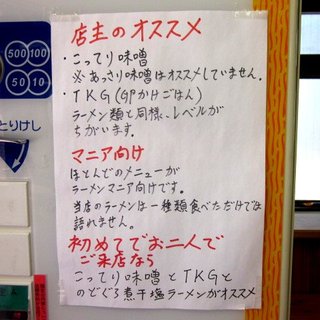 店主のオススメ
・こってり味噌
※あっさり味噌はオススメしていません。
・TKG(GPかけごはん)
ラーメン類と同様、レベルが
ちがいます。
マニア向け
ほとんどのメニューが
ラーメンマニア向けです。
当店のラーメンは一種類食べただけでは
語れません。
初めてでお二人で
ご来店なら
こってり味噌とTKGと
のどぐろ煮干塩ラーメンがオススメ
500 100
50 10
とりけし